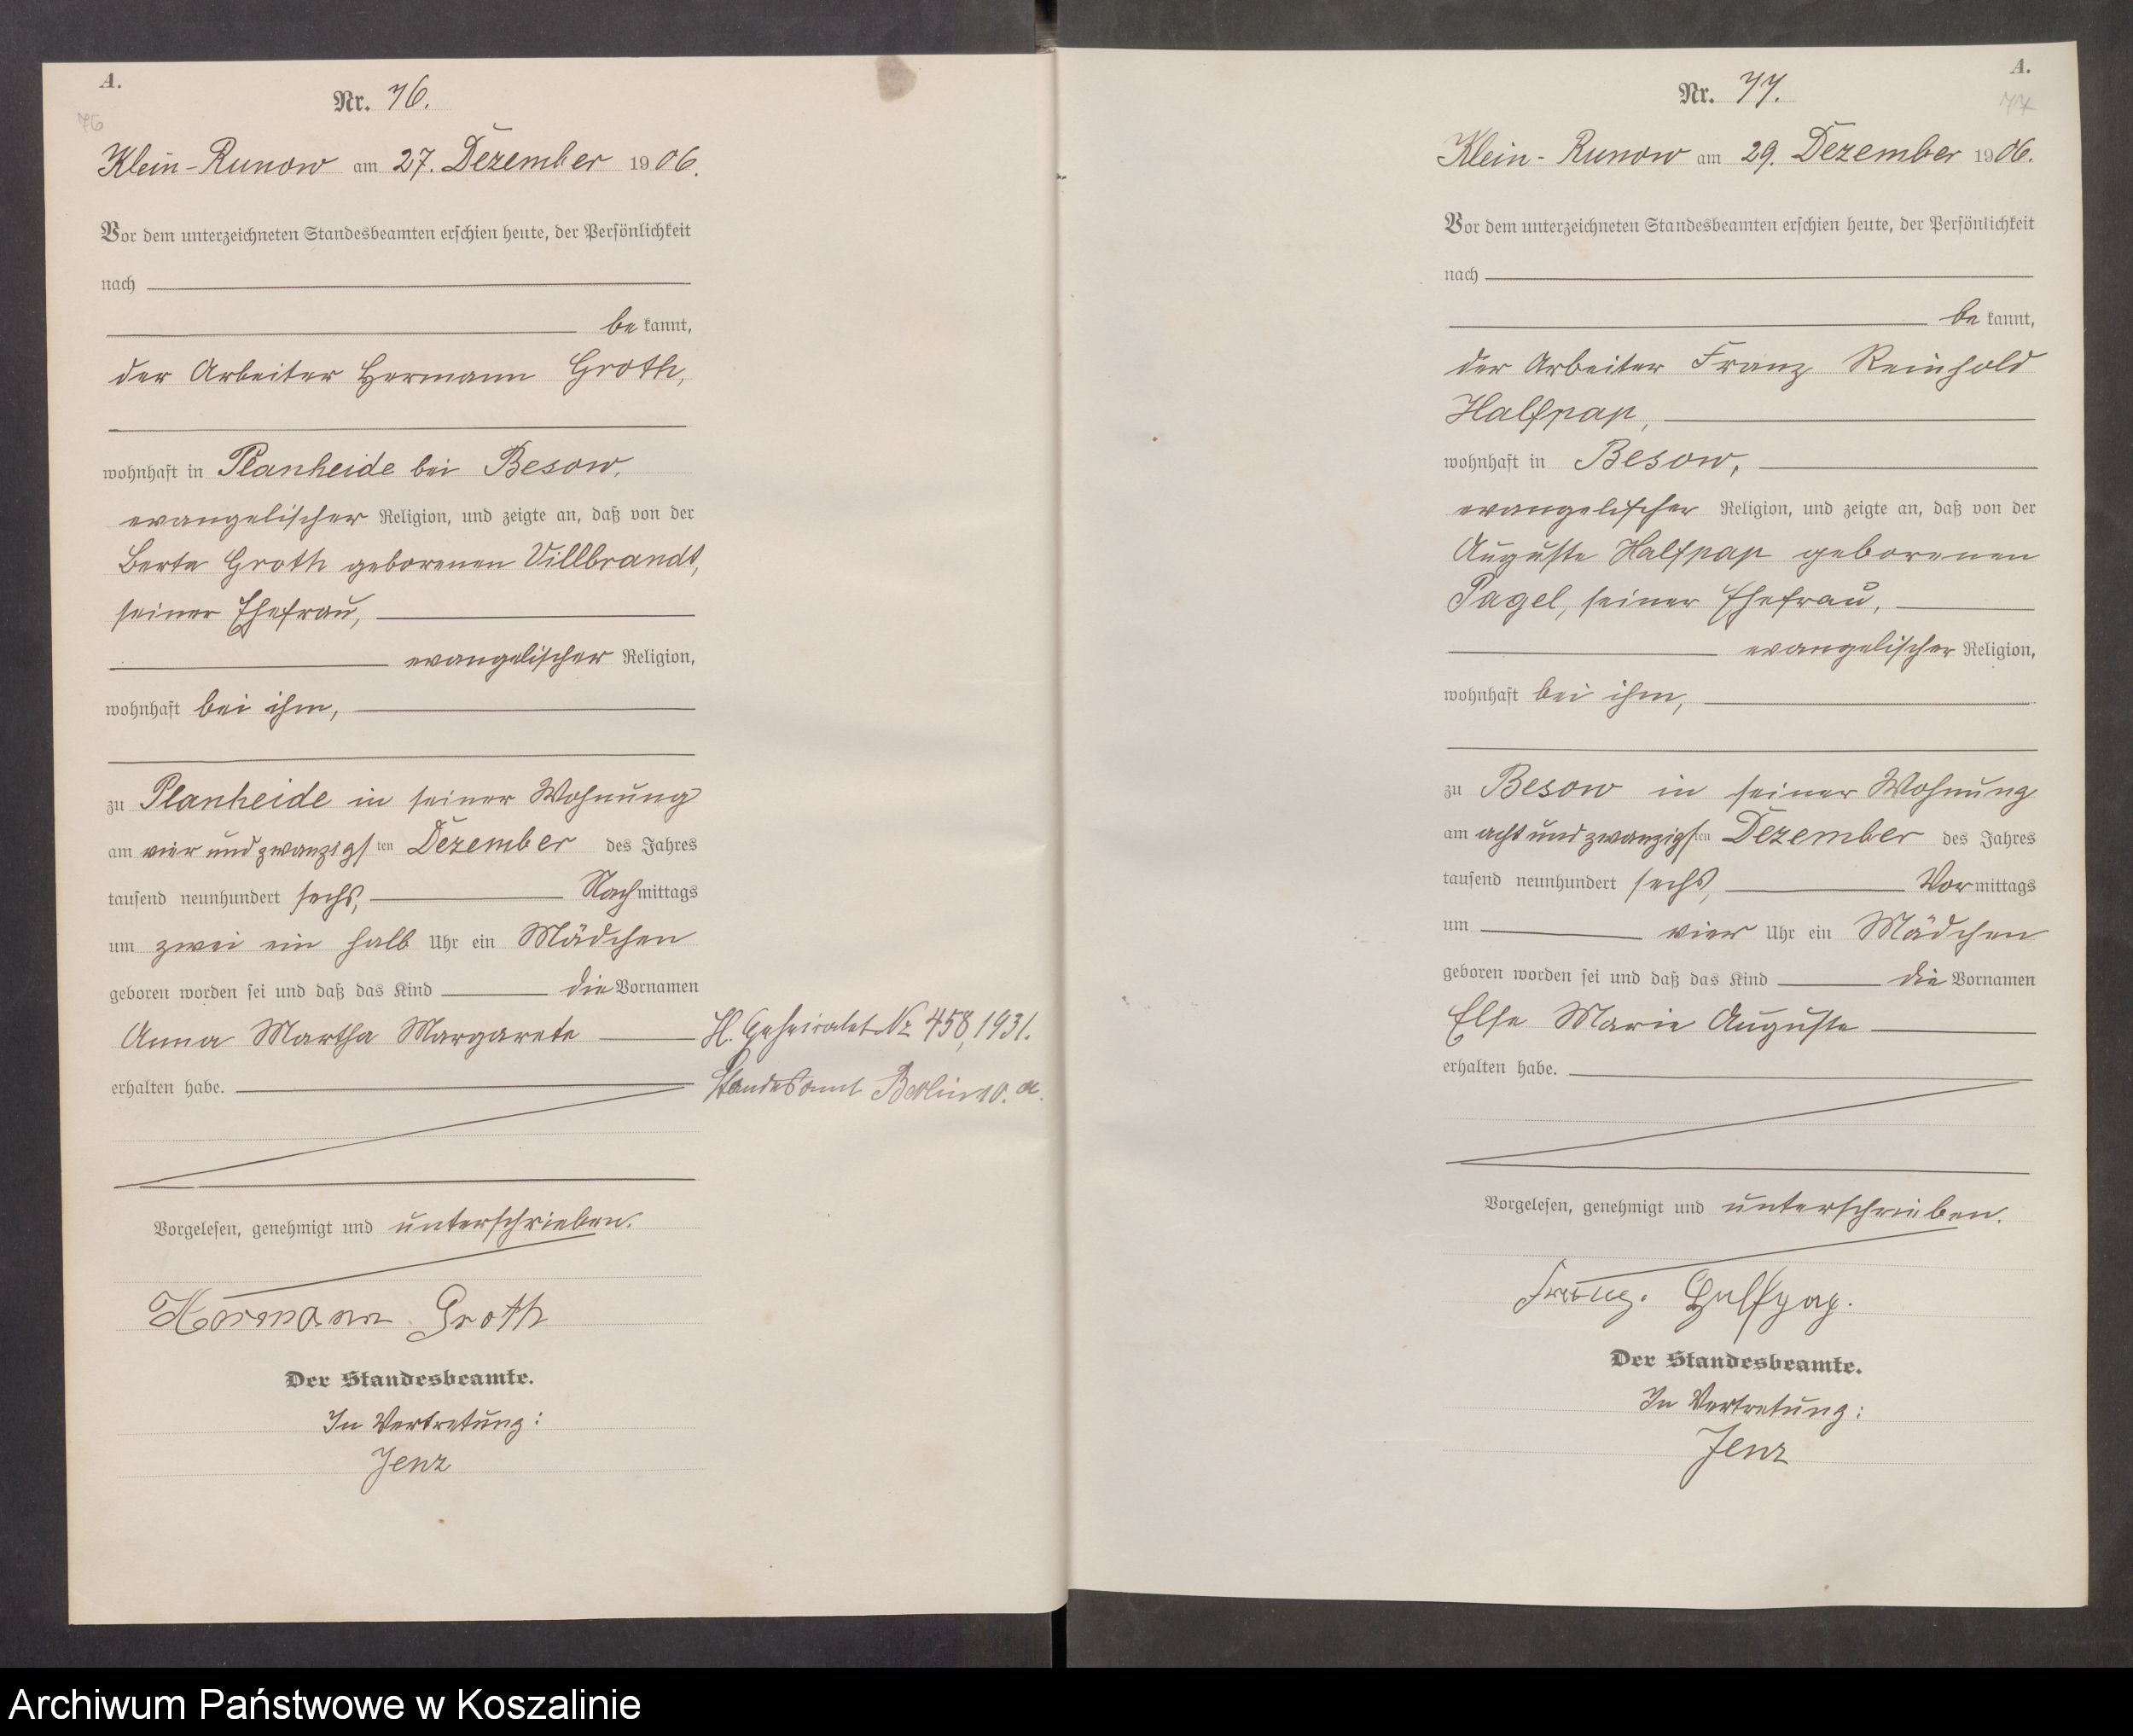 A.
76
Nr. 76.
Klein-Runow am 27. Dezember 1906.
Vor dem unterzeichneten Standesbeamten erschien heute, der Persönlichkeit
nach
bekannt,
der Arbeiter Hermann Groth,
wohnhaft in Planheide bei Besow,
evangelischer Religion, und zeigte an, daß von der
Berta Groth geborenen Villbrandt,
seiner Ehefrau,
evangelischer Religion,
wohnhaft bei ihm,
zu Planheide in seiner Wohnung
am vier und zwanzigsten Dezember des Jahres
tausend neunhundert sechs, Nachmittags
um zwei ein halb Uhr ein Mädchen
geboren worden sei und daß das Kind die Vornamen
Anna Martha Margarete
erhalten habe.
H. Geheiratet Nr 458, 1931.
Standesamt Berlin 10. a.
Vorgelesen, genehmigt und unterschrieben.
Hermann Groth
Der Standesbeamte.
In Vertretung:
Jenz
A.
77
Nr. 77.
Klein-Runow am 29. Dezember 1906.
Vor dem unterzeichneten Standesbeamten erschien heute, der Persönlichkeit
nach
bekannt,
der Arbeiter Franz Reinhold
Halfpap,
wohnhaft in Besow,
evangelischer Religion, und zeigte an, daß von der
Auguste Halfpap geborenen
Pagel, seiner Ehefrau,
evangelischer Religion,
wohnhaft bei ihm,
zu Besow in seiner Wohnung
am acht und zwanzigsten Dezember des Jahres
tausend neunhundert sechs, Vormittags
um vier Uhr ein Mädchen
geboren worden sei und daß das Kind die Vornamen
Else Marie Auguste
erhalten habe.
Vorgelesen, genehmigt und unterschrieben.
Franz. Halfpap.
Der Standesbeamte.
In Vertretung:
Jenz
Archiwum Państwowe w Koszalinie